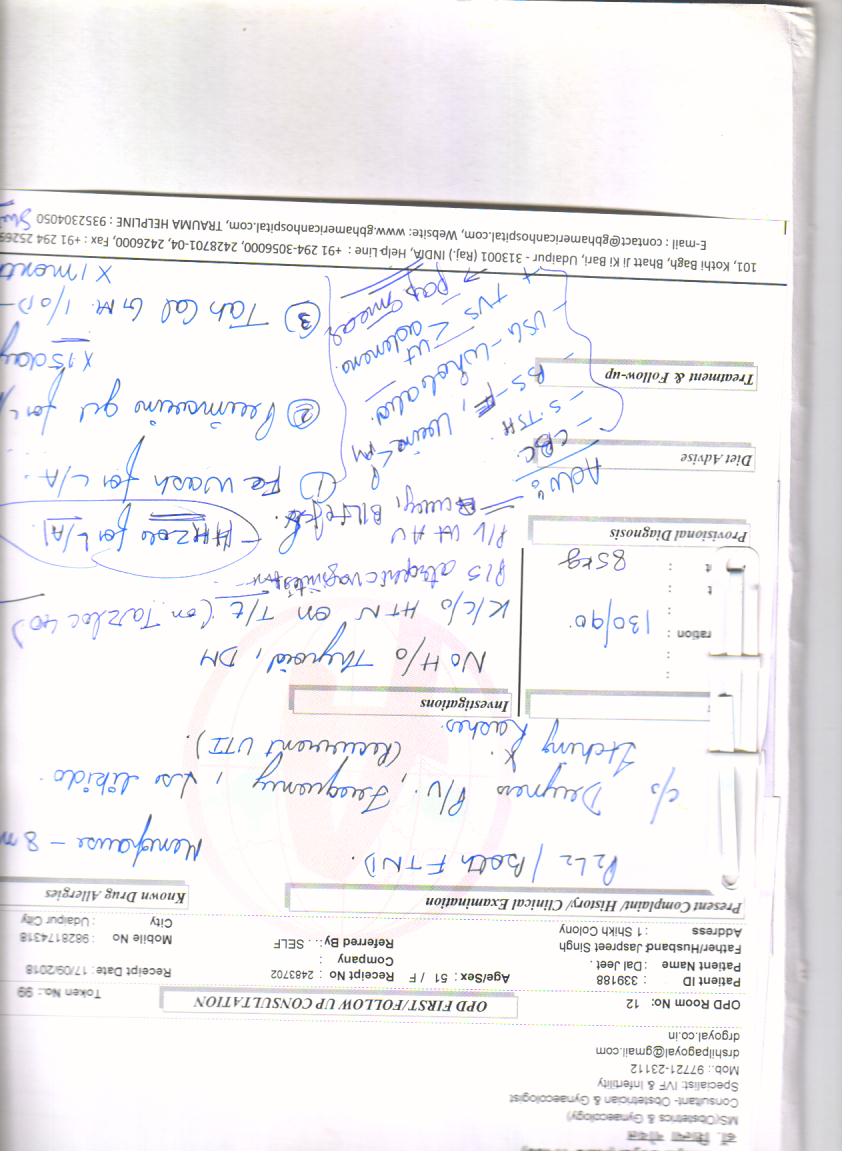 MS(Obstetrics & Gynaecology)
Consultant- Obstetrician & Gynaecologist
Specialist: IVF & Infertility
Mob.: 97721-23112
drshilpagoyal@gmail.com
drgoyal.co.in
OPD Room No: 12 OPD FIRST/FOLLOW UP CONSULTATION Token No.: 99
Patient ID : 339188
Patient Name : Dal jeet . Age/Sex : 51 / F Receipt No : 2483702 Receipt Date: 17/09/2018
Father/Husband Jaspreet Singh Company :
Address : 1 Shikh Colony Referred By.: . SELF Mobile No : 9828174318
City : Udaipur City
Present Complaint/ History/ Clinical Examination Known Drug Allergies
P2L2 / Both FTND. Menopause - 8 m
c/o Dryness P/V, Frequency, ↓se libido.
Itching Rashes. (Recurrent UTI).
Investigations
No H/o Thyroid, DM
K/c/o HTN on T/t (on Tazloc 40)
ration : 130/90.
t :
t : 85kg
P/S atrophic vaginitis
P/V ut AV
Provisional Diagnosis
HHzole for L/A
Adv:
- CBC
- S. TSH
- BS-F, Urine
- USG - Whole abd.
TVS
→ Pap smear
Diet Advise
① wash for L/A.
② gel for
X 15 day
Treatment & Follow-up
③ Tab Cal G.M. 1/OD -
X 1 mont
101, Kothi Bagh, Bhatt Ji Ki Bari, Udaipur - 313001 (Raj.) INDIA, Help Line : +91 294-3056000, 2428701-04, 2426000, Fax : +91 294 25269
E-mail : contact@gbhamericanhospital.com, Website: www.gbhamericanhospital.com, TRAUMA HELPLINE : 9352304050